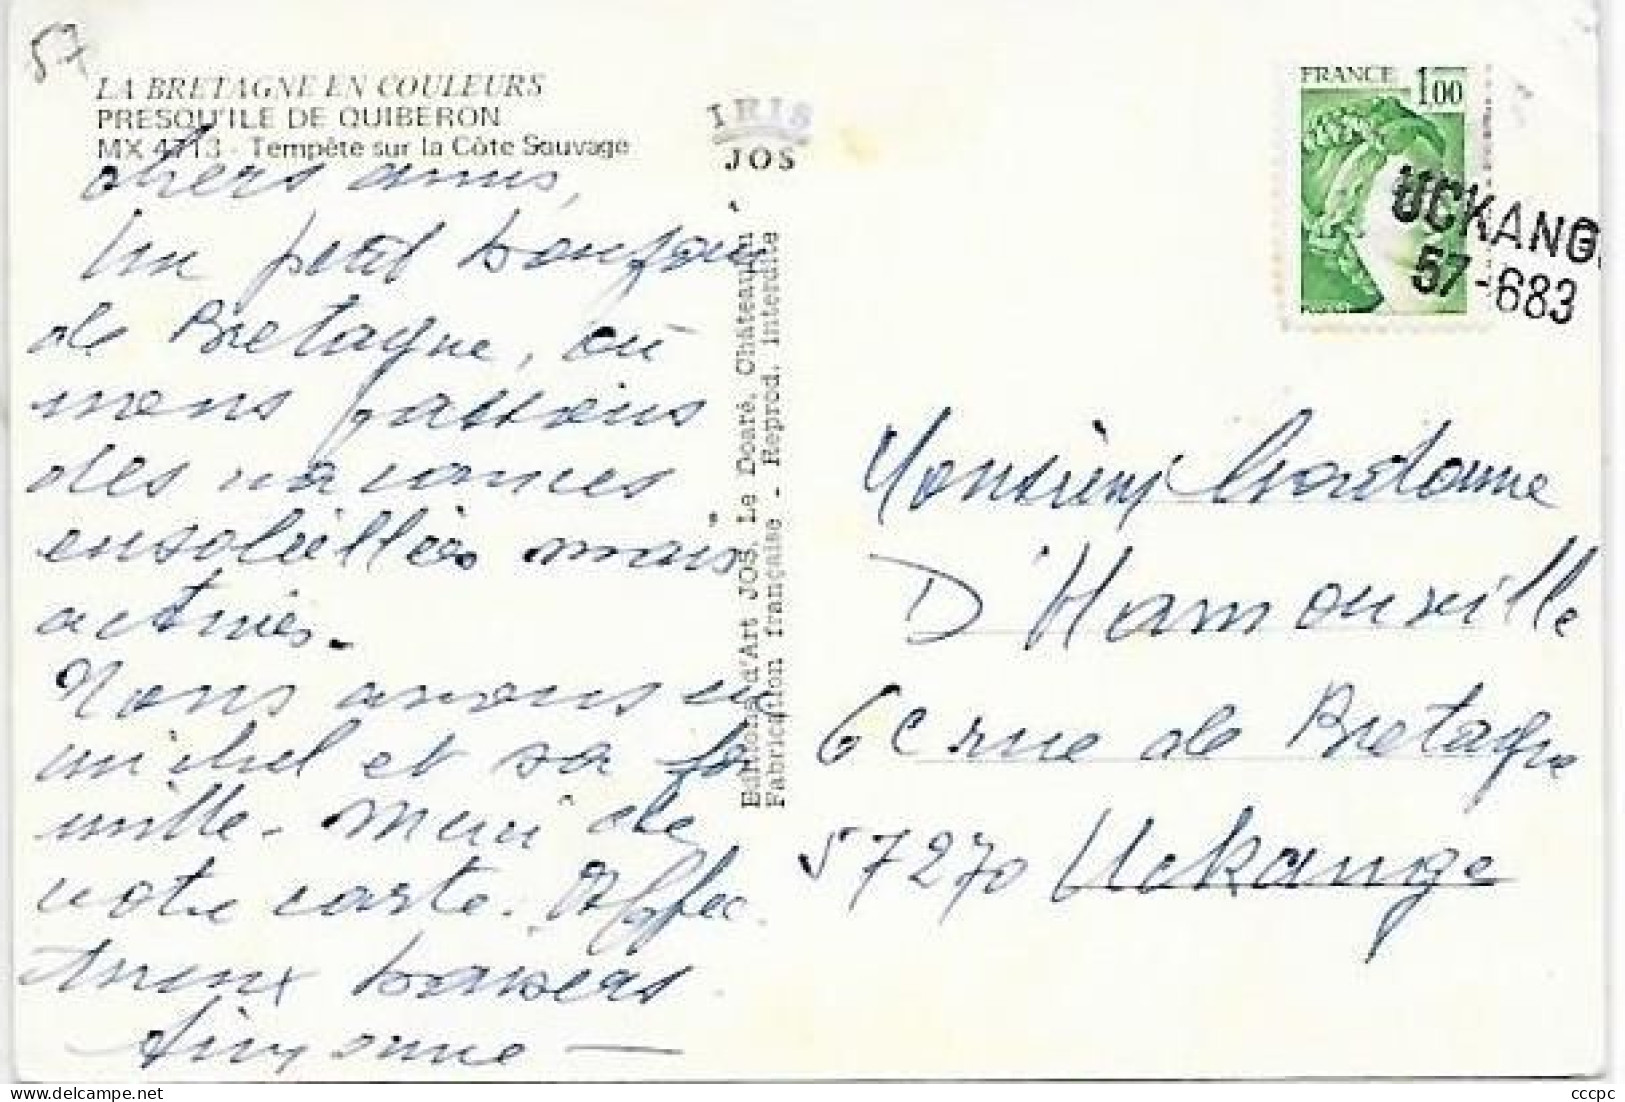 57
LA BRETAGNE EN COULEURS
PRESQU'ILE DE QUIBERON
MX 4713 - Tempête sur la Côte Sauvage
chers amis,
Un petit bonjour
de Bretagne, où
nous passons
des vacances
ensoleillées mais
actives.
Nous avons vu
michel et sa fa
mille. Merci de
votre carte. Affec
tueux baisers
IRIS
JOS
Editions d'Art JOS. Le Doaré. Châteaulin
Fabrication française - Reprod. interdite
FRANCE 1,00
UCKANG
57-683
Monsieur
D'Hamonville
6c rue de Bretagne
57270 Uckange
cccpc